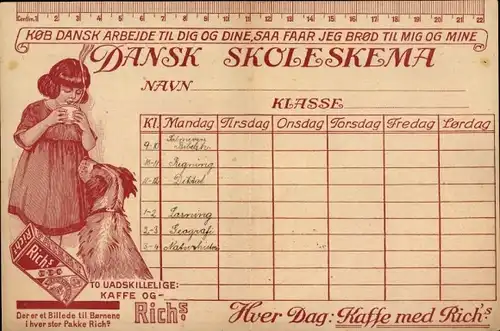 1 2 3 4 5 6 7 8 9 10 11 12 13 14 15 16 17 18 19 20 21 22
KØB DANSK ARBEJDE TIL DIG OG DINE, SAA FAAR JEG BRØD TIL MIG OG MINE
DANSK SKOLESKEMA
NAVN
KLASSE
Kl. Mandag Tirsdag Onsdag Torsdag Fredag Lørdag
9-10
10-11 Regning
11-12 Diktat
1-2 Læsning
2-3 Geografi
3-4
RICH
RICH'S
TO UADSKILLELIGE:
KAFFE OG-
RICH'S!
Der er et Billede til Børnene
i hver stor Pakke Rich?
Hver Dag: Kaffe med Rich's